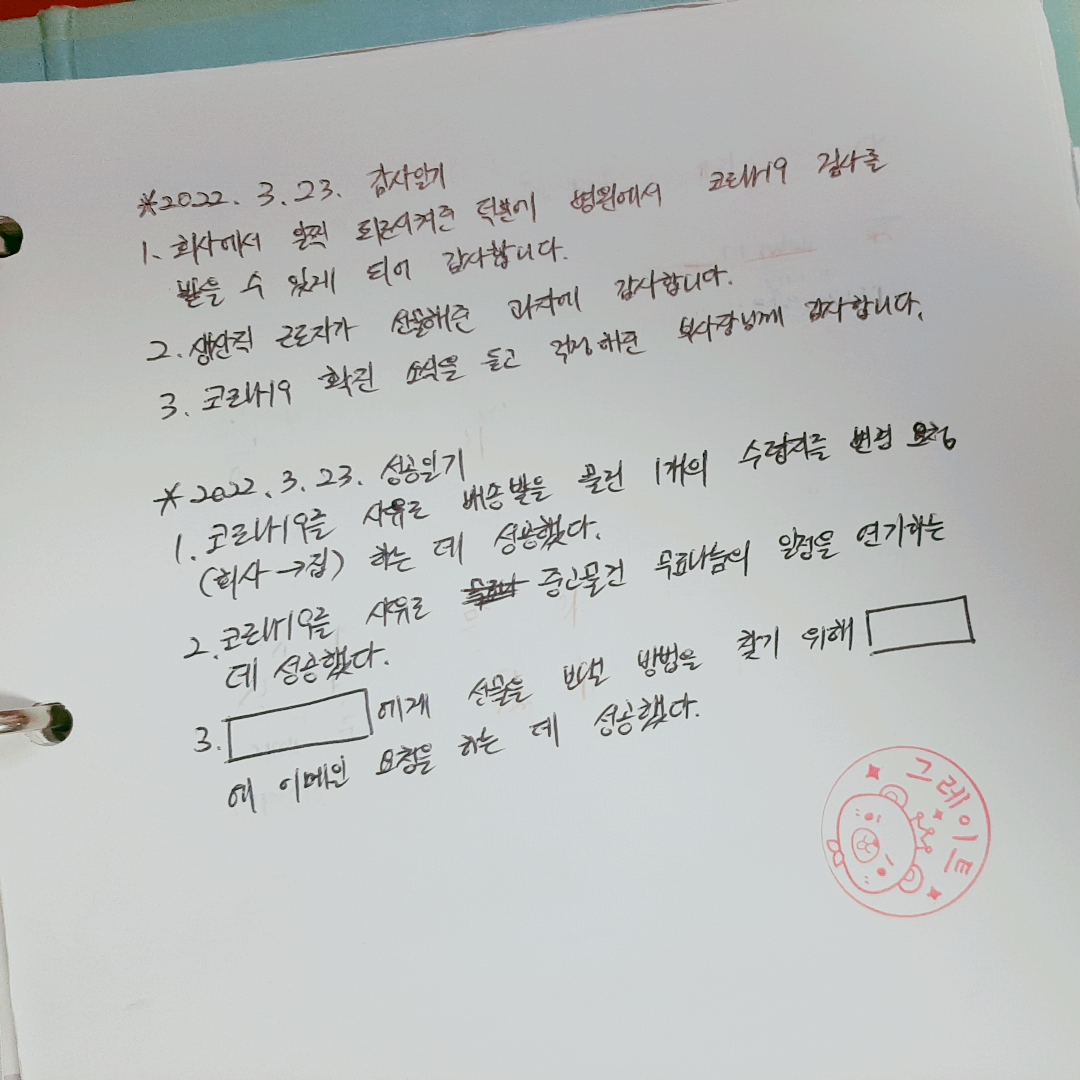 *2022. 3. 23. 감사일기
1. 회사에서 일찍 퇴근시켜준 덕분에 병원에서 코로나19 검사를
받을 수 있게 되어 감사합니다.
2. 생산직 근로자가 선물해준 과자에 감사합니다.
3. 코로나19 확진 소식을 듣고 걱정해준 부사장님께 감사합니다.
*2022. 3. 23. 성공일기
1. 코로나19를 사유로 배송발을 물건 1개의 수령지를 변경 요청
(회사→집) 하는 데 성공했다.
2. 코로나19를 사유로 중고물건 무료나눔의 일정을 연기하는
데 성공했다.
3. 에게 선물을 보낼 방법을 찾기 위해
에 이메일 요청을 하는 데 성공했다.
그레이트